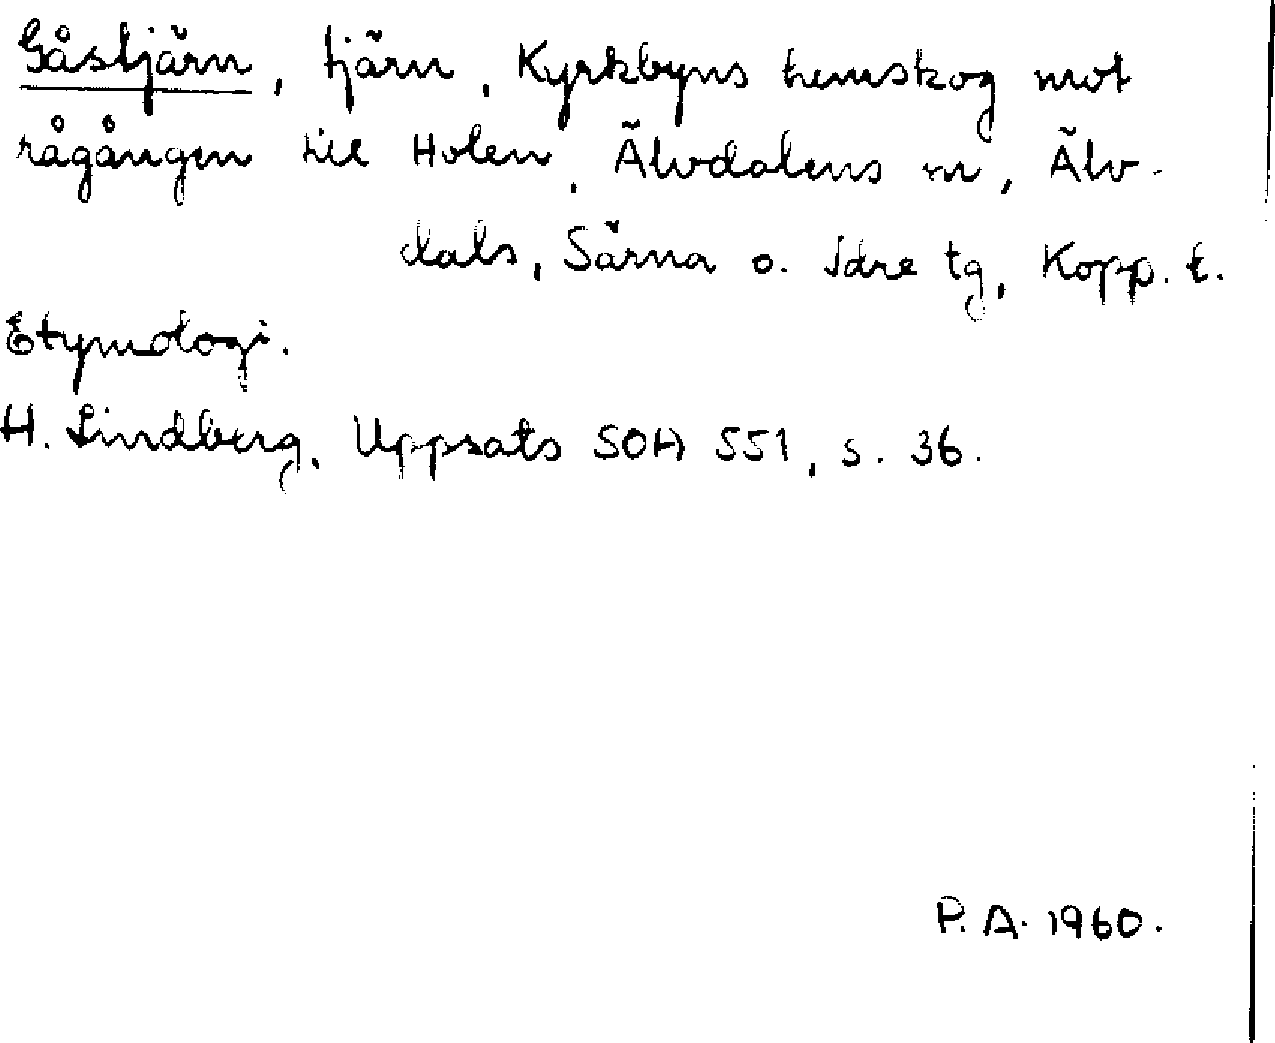 Gåstjärn, tjärn, Kyrkbyns hemskog mot
rågången till Holen, Älvdalens sn, Älv-
dals, Särna o. Idre tg, Kopp. l.
Etymologi.
H. Lindberg, Uppsats SOA 551, s. 36.
P. A. 1960.